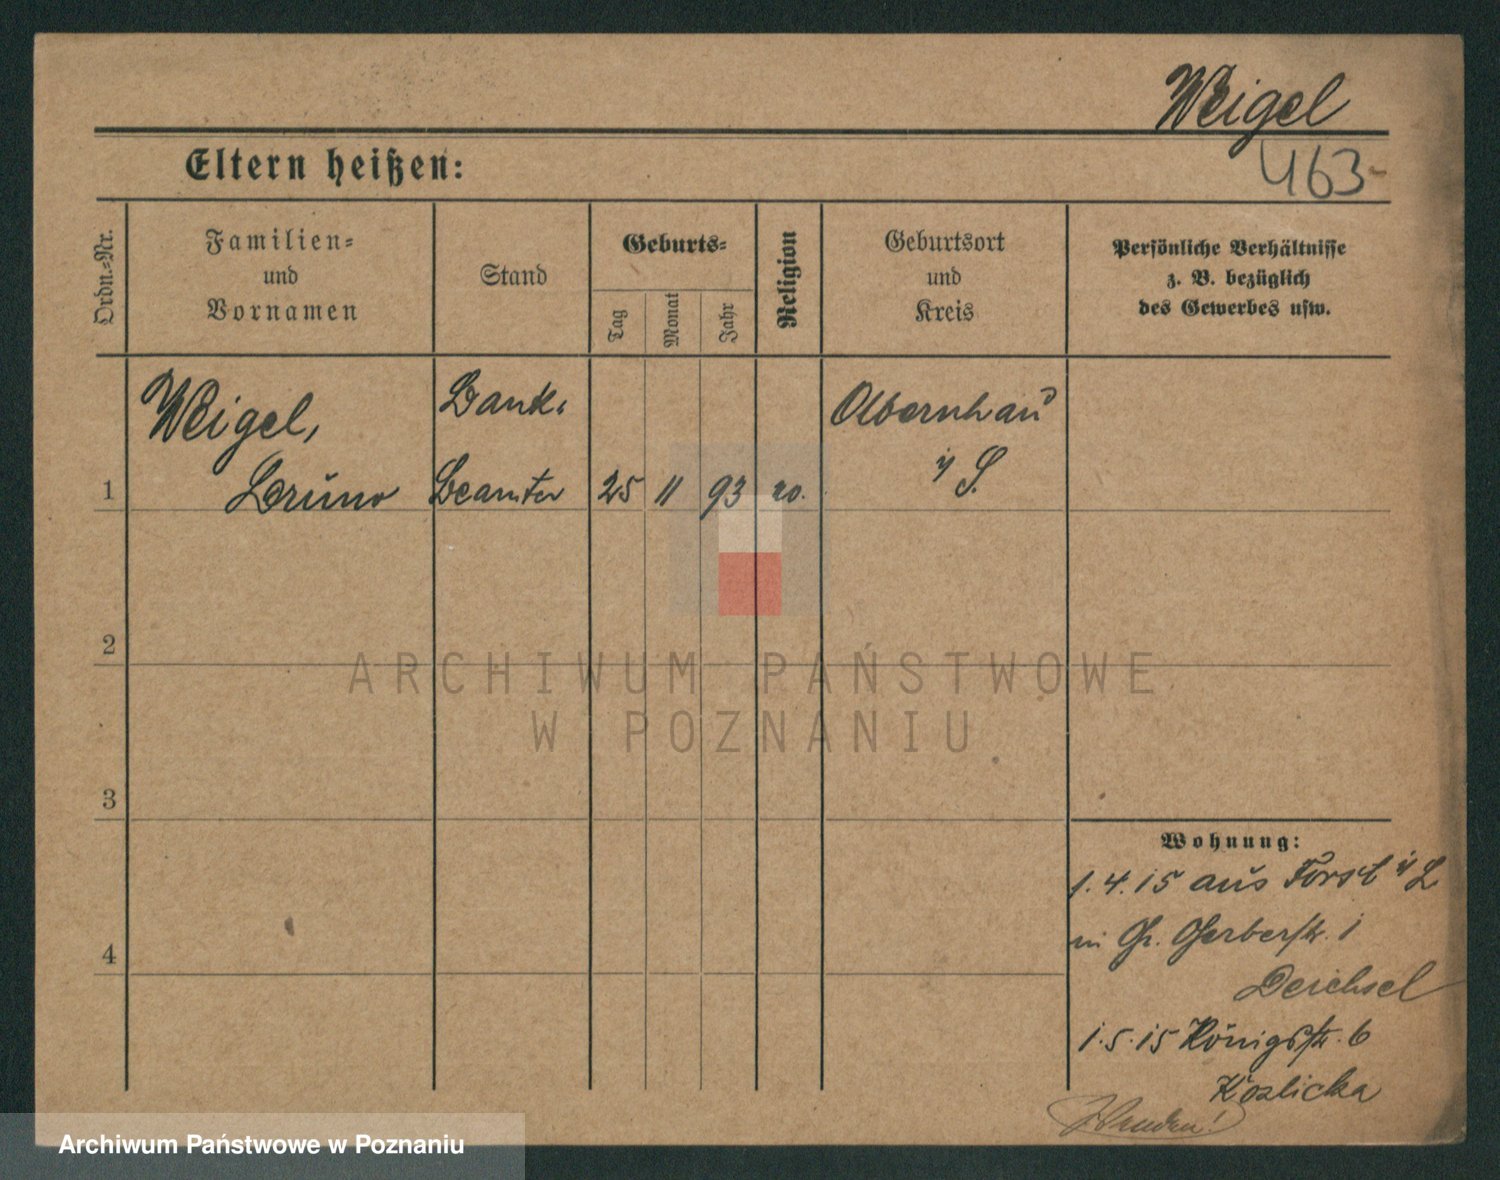 Weigel
463
Eltern heißen:
Ordn.=Nr.
Familien=
und
Vornamen
Stand
Geburts=
Tag
Monat
Jahr
Religion
Geburtsort
und
Kreis
Persönliche Verhältnisse
z. B. bezüglich
des Gewerbes usw.
Weigel,
Bruno
Bank.
Beamter
25 11 93
Olbernhau
i/S.
1
2
3
4
Wohnung:
1.4.15 aus Forst i/L
in Gr. Gerberstr. 1
Deichsel
1.5.15 Königstr. 6
Kozlicka
ARCHIWUM PAŃSTWOWE
W POZNANIU
Archiwum Państwowe w Poznaniu